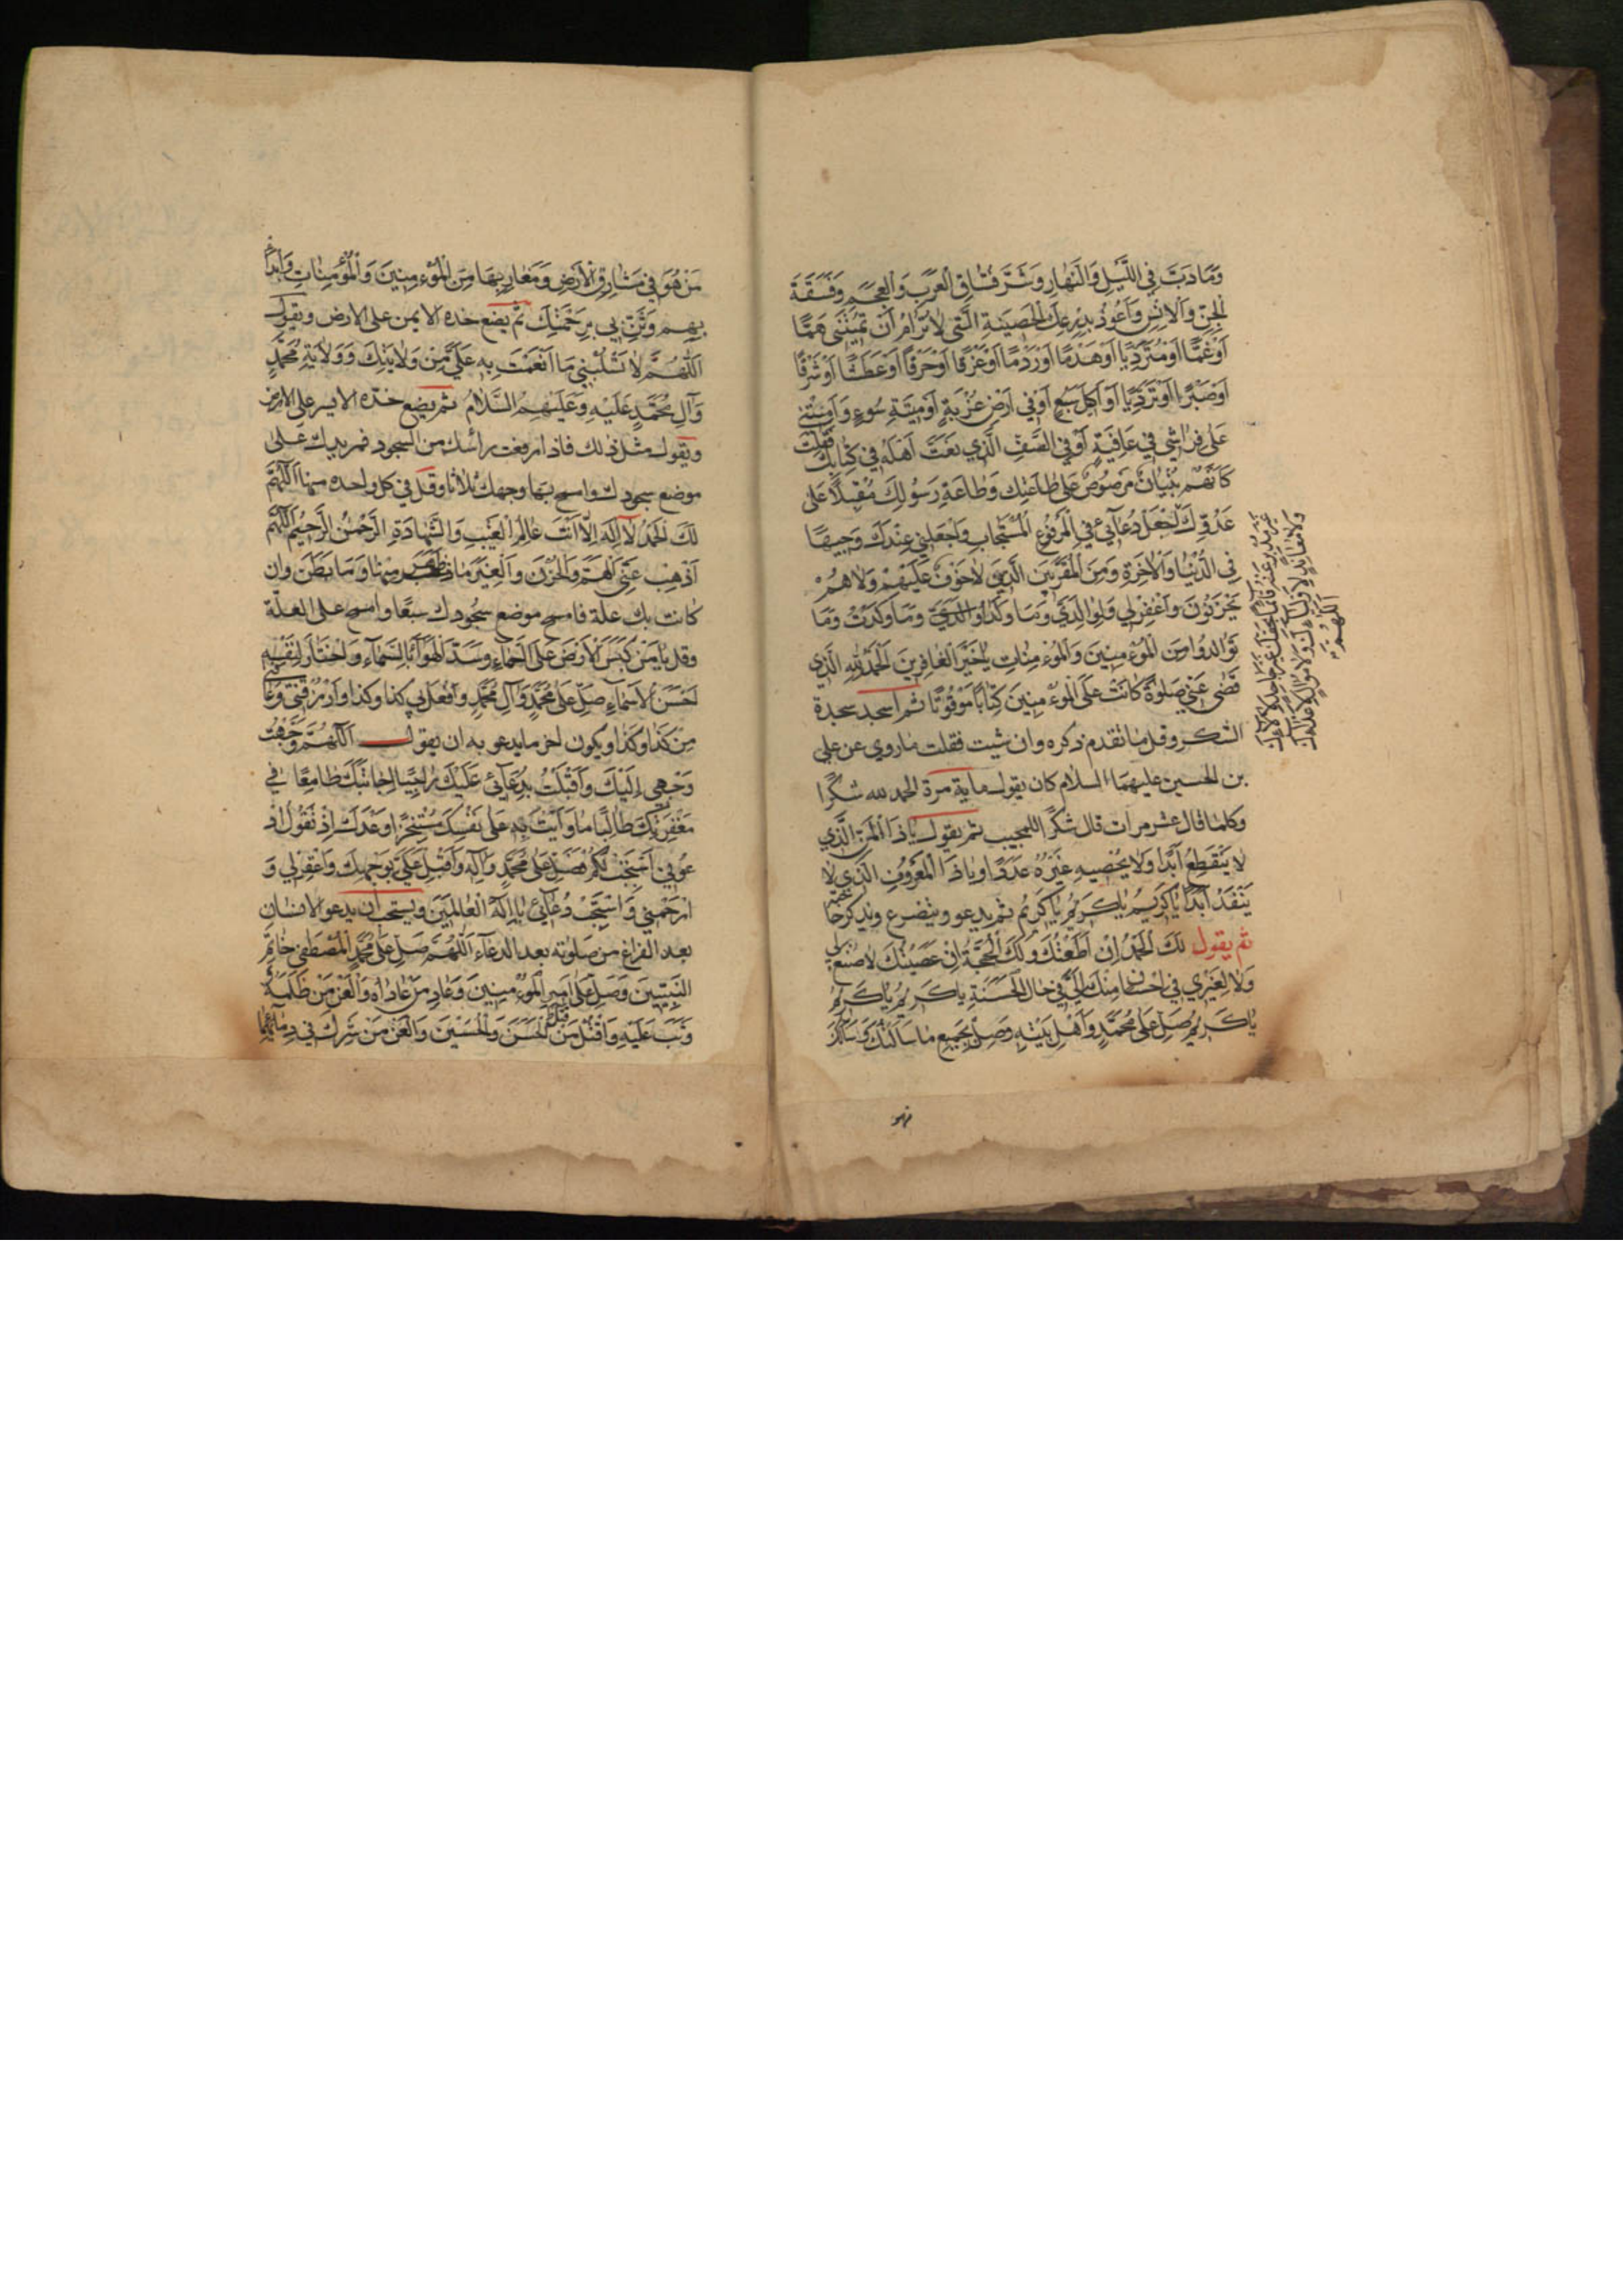 وَمَا دَبَّ فِي اللَّيْلِ وَالنَّهَارِ وَشَرِّ فُسَّاقِ الْعَرَبِ وَالْعَجَمِ وَفَسَقَةِ
الْجِنِّ وَالْاِنْسِ وَأَعُوذُ بِدِرْعِكَ الْحَصِينَةِ الَّتِي لَا تُرَامُ أَنْ تُمِيتَنِي هَمًّا
أَوْ غَمًّا أَوْ مُتَرَدِّيًا أَوْ هَدْمًا أَوْ رَدْمًا أَوْ غَرَقًا أَوْ حَرْقًا أَوْ عَطَشًا أَوْ شَرْقًا
أَوْ صَبْرًا أَوْ تَرَدِّيًا أَوْ أَكِلَ سَبُعٍ أَوْ فِي أَرْضِ غُرْبَةٍ أَوْ مِيتَةِ سُوءٍ وَأَمِتْنِي
عَلَى فِرَاشِي فِي عَافِيَةٍ أَوْ فِي الصَّفِّ الَّذِي نَعَتَّ أَهْلَهُ فِي كِتَابِكَ فَقُلْتَ
كَأَنَّهُمْ بُنْيَانٌ مَرْصُوصٌ عَلَى طَاعَتِكَ وَطَاعَةِ رَسُولِكَ مُقْبِلًا عَلَى
عَدُوِّكَ اجْعَلْ دُعَائِي فِي الْمَرْفُوعِ الْمُسْتَجَابِ وَاجْعَلْنِي عِنْدَكَ وَجِيهًا
فِي الدُّنْيَا وَالْآخِرَةِ وَمِنَ الْمُقَرَّبِينَ الَّذِينَ لَا خَوْفٌ عَلَيْهِمْ وَلَا هُمْ
يَحْزَنُونَ وَاغْفِرْ لِي وَلِوَالِدَيَّ وَمَا وَلَدَا وَالِدَيَّ وَمَا وَلَدْتُ وَمَا
تَوَالَدُوا مِنَ الْمُؤْمِنِينَ وَالْمُؤْمِنَاتِ يَا خَيْرَ الْغَافِرِينَ الْحَمْدُ لِلَّهِ الَّذِي
قَضَى عَنِّي صَلَوةً كَانَتْ عَلَى الْمُؤْمِنِينَ كِتَابًا مَوْقُوتًا ثم اسجد سجدة
الشكر وقل ما تقدم ذكره وان شيت فقلت ماروي عن علي
بن الحسين عليهما السلام كان يقول ماية مرة الحمد لله شكرًا
وكلما قال عشر مرات قال شكرا للمجيب ثم يقول يَا ذَا الْمَنِّ الَّذِي
لَا يَنْقَطِعُ أَبَدًا وَلَا يُحْصِيهِ غَيْرُهُ عَدَدًا وَيَا ذَا الْمَعْرُوفِ الَّذِي لَا
يَنْفَدُ أَبَدًا يَا كَرِيمُ يَا كَرِيمُ يَا كَرِيمُ ثم يدعو ويتضرع ويذكر حاجته
ثم يقول لَكَ الْحَمْدُ إِنْ أَطَعْتُكَ وَلَكَ الْحُجَّةُ إِنْ عَصَيْتُكَ لَا صُنْعَ لِي
وَلَا لِغَيْرِي فِي إِحْسَانٍ مِنْكَ إِلَيَّ فِي حَالِ الْحَسَنَةِ يَا كَرِيمُ يَا كَرِيمُ
يَا كَرِيمُ صَلِّ عَلَى مُحَمَّدٍ وَأَهْلِ بَيْتِهِ وَصِلْ بِجَمِيعِ مَا سَأَلْتُكَ
اللّهُمَّ
مَنْ هُوَ فِي مَشَارِقِ الْأَرْضِ وَمَغَارِبِهَا مِنَ الْمُؤْمِنِينَ وَالْمُؤْمِنَاتِ وَابْدَأْ
بِهِمْ وَثَنِّ بِي بِرَحْمَتِكَ ثم يضع خده الايمن على الارض ويقول
اَللّهُمَّ لَا تَسْلُبْنِي مَا أَنْعَمْتَ بِهِ عَلَيَّ مِنْ وَلَايَتِكَ وَوَلَايَةِ مُحَمَّدٍ
وَآلِ مُحَمَّدٍ عَلَيْهِ وَعَلَيْهِمُ السَّلَامُ ثم يضع خده الايسر على الارض
ويقول مثل ذلك فاذا رفعت رأسك من السجود فمر يدك على
موضع سجودك وامسح بها وجهك ثلاثا وقل في كل واحده منها اَللّهُمَّ
لَكَ الْحَمْدُ لَا إِلَهَ إِلَّا أَنْتَ عَالِمُ الْغَيْبِ وَالشَّهَادَةِ الرَّحْمَنُ الرَّحِيمُ اَللّهُمَّ
أَذْهِبْ عَنِّي الْهَمَّ وَالْحُزْنَ وَالْغِيَرَ مَا ظَهَرَ مِنْهَا وَمَا بَطَنَ وان
كانت بك علة فامسح موضع سجودك سبعًا وامسح على العلّة
وقل يَا مَنْ كَبَسَ الْأَرْضَ عَلَى الْمَاءِ وَسَدَّ الْهَوَاءَ بِالسَّمَاءِ وَاخْتَارَ لِنَفْسِهِ
أَحْسَنَ الْأَسْمَاءِ صَلِّ عَلَى مُحَمَّدٍ وَآلِ مُحَمَّدٍ وَافْعَلْ بِي كَذَا وَكَذَا وَارْزُقْنِي وَعَافِنِي
مِنْ كَذَا وَكَذَا ويكون اخر ما يدعو به ان يقول اَللّهُمَّ وَجَّهْتُ
وَجْهِي إِلَيْكَ وَأَقْبَلْتُ بِدُعَائِي عَلَيْكَ رَاجِيًا إِجَابَتَكَ طَامِعًا فِي
مَغْفِرَتِكَ طَالِبًا مَا وَأَيْتَ بِهِ عَلَى نَفْسِكَ مُسْتَنْجِزًا وَعْدَكَ إِذْ تَقُولُ ادْ
عُونِي أَسْتَجِبْ لَكُمْ فَصَلِّ عَلَى مُحَمَّدٍ وَآلِهِ وَأَقْبِلْ عَلَيَّ بِوَجْهِكَ وَاغْفِرْ لِي وَ
ارْحَمْنِي وَاسْتَجِبْ دُعَائِي يَا إِلَهَ الْعَالَمِينَ ويستحب ان يدعو الانسان
بعد الفراغ من صلوته بعد الدعاء اَللّهُمَّ صَلِّ عَلَى مُحَمَّدٍ الْمُصْطَفَى خَاتَمِ
النَّبِيِّينَ وَصَلِّ عَلَى أَمِيرِ الْمُؤْمِنِينَ وَعَادِ مَنْ عَادَاهُ وَالْعَنْ مَنْ ظَلَمَهُ
وَثَبَ عَلَيْهِ وَاقْتُلْ مَنْ قَتَلَ الْحَسَنَ وَالْحُسَيْنَ وَالْعَنْ مَنْ شَرِكَ فِي دِمَائِهِمَا